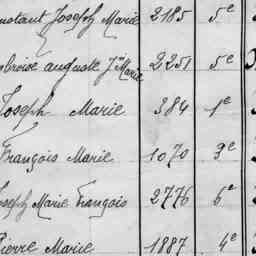 Constant Joseph Marie 2185 5e
Ambroise auguste Jn Marie 2251 5e
Joseph Marie 384 1e
François Marie 1070 3e
Joseph Marie François 2776 6e
Pierre Marie 1887 4e